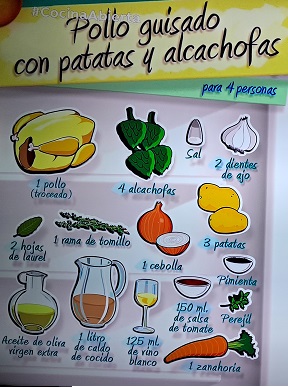 #CocinaAbierta
Pollo guisado
con patatas y alcachofas
para 4 personas
1 pollo
(troceado)
4 alcachofas
Sal
2 dientes
de ajo
2 hojas
de laurel
1 rama de tomillo
1 cebolla
3 patatas
Pimienta
Perejil
Aceite de oliva
virgen extra
1 litro
de caldo
de cocido
125 ml.
de vino
blanco
150 ml.
de salsa
de tomate
1 zanahoria